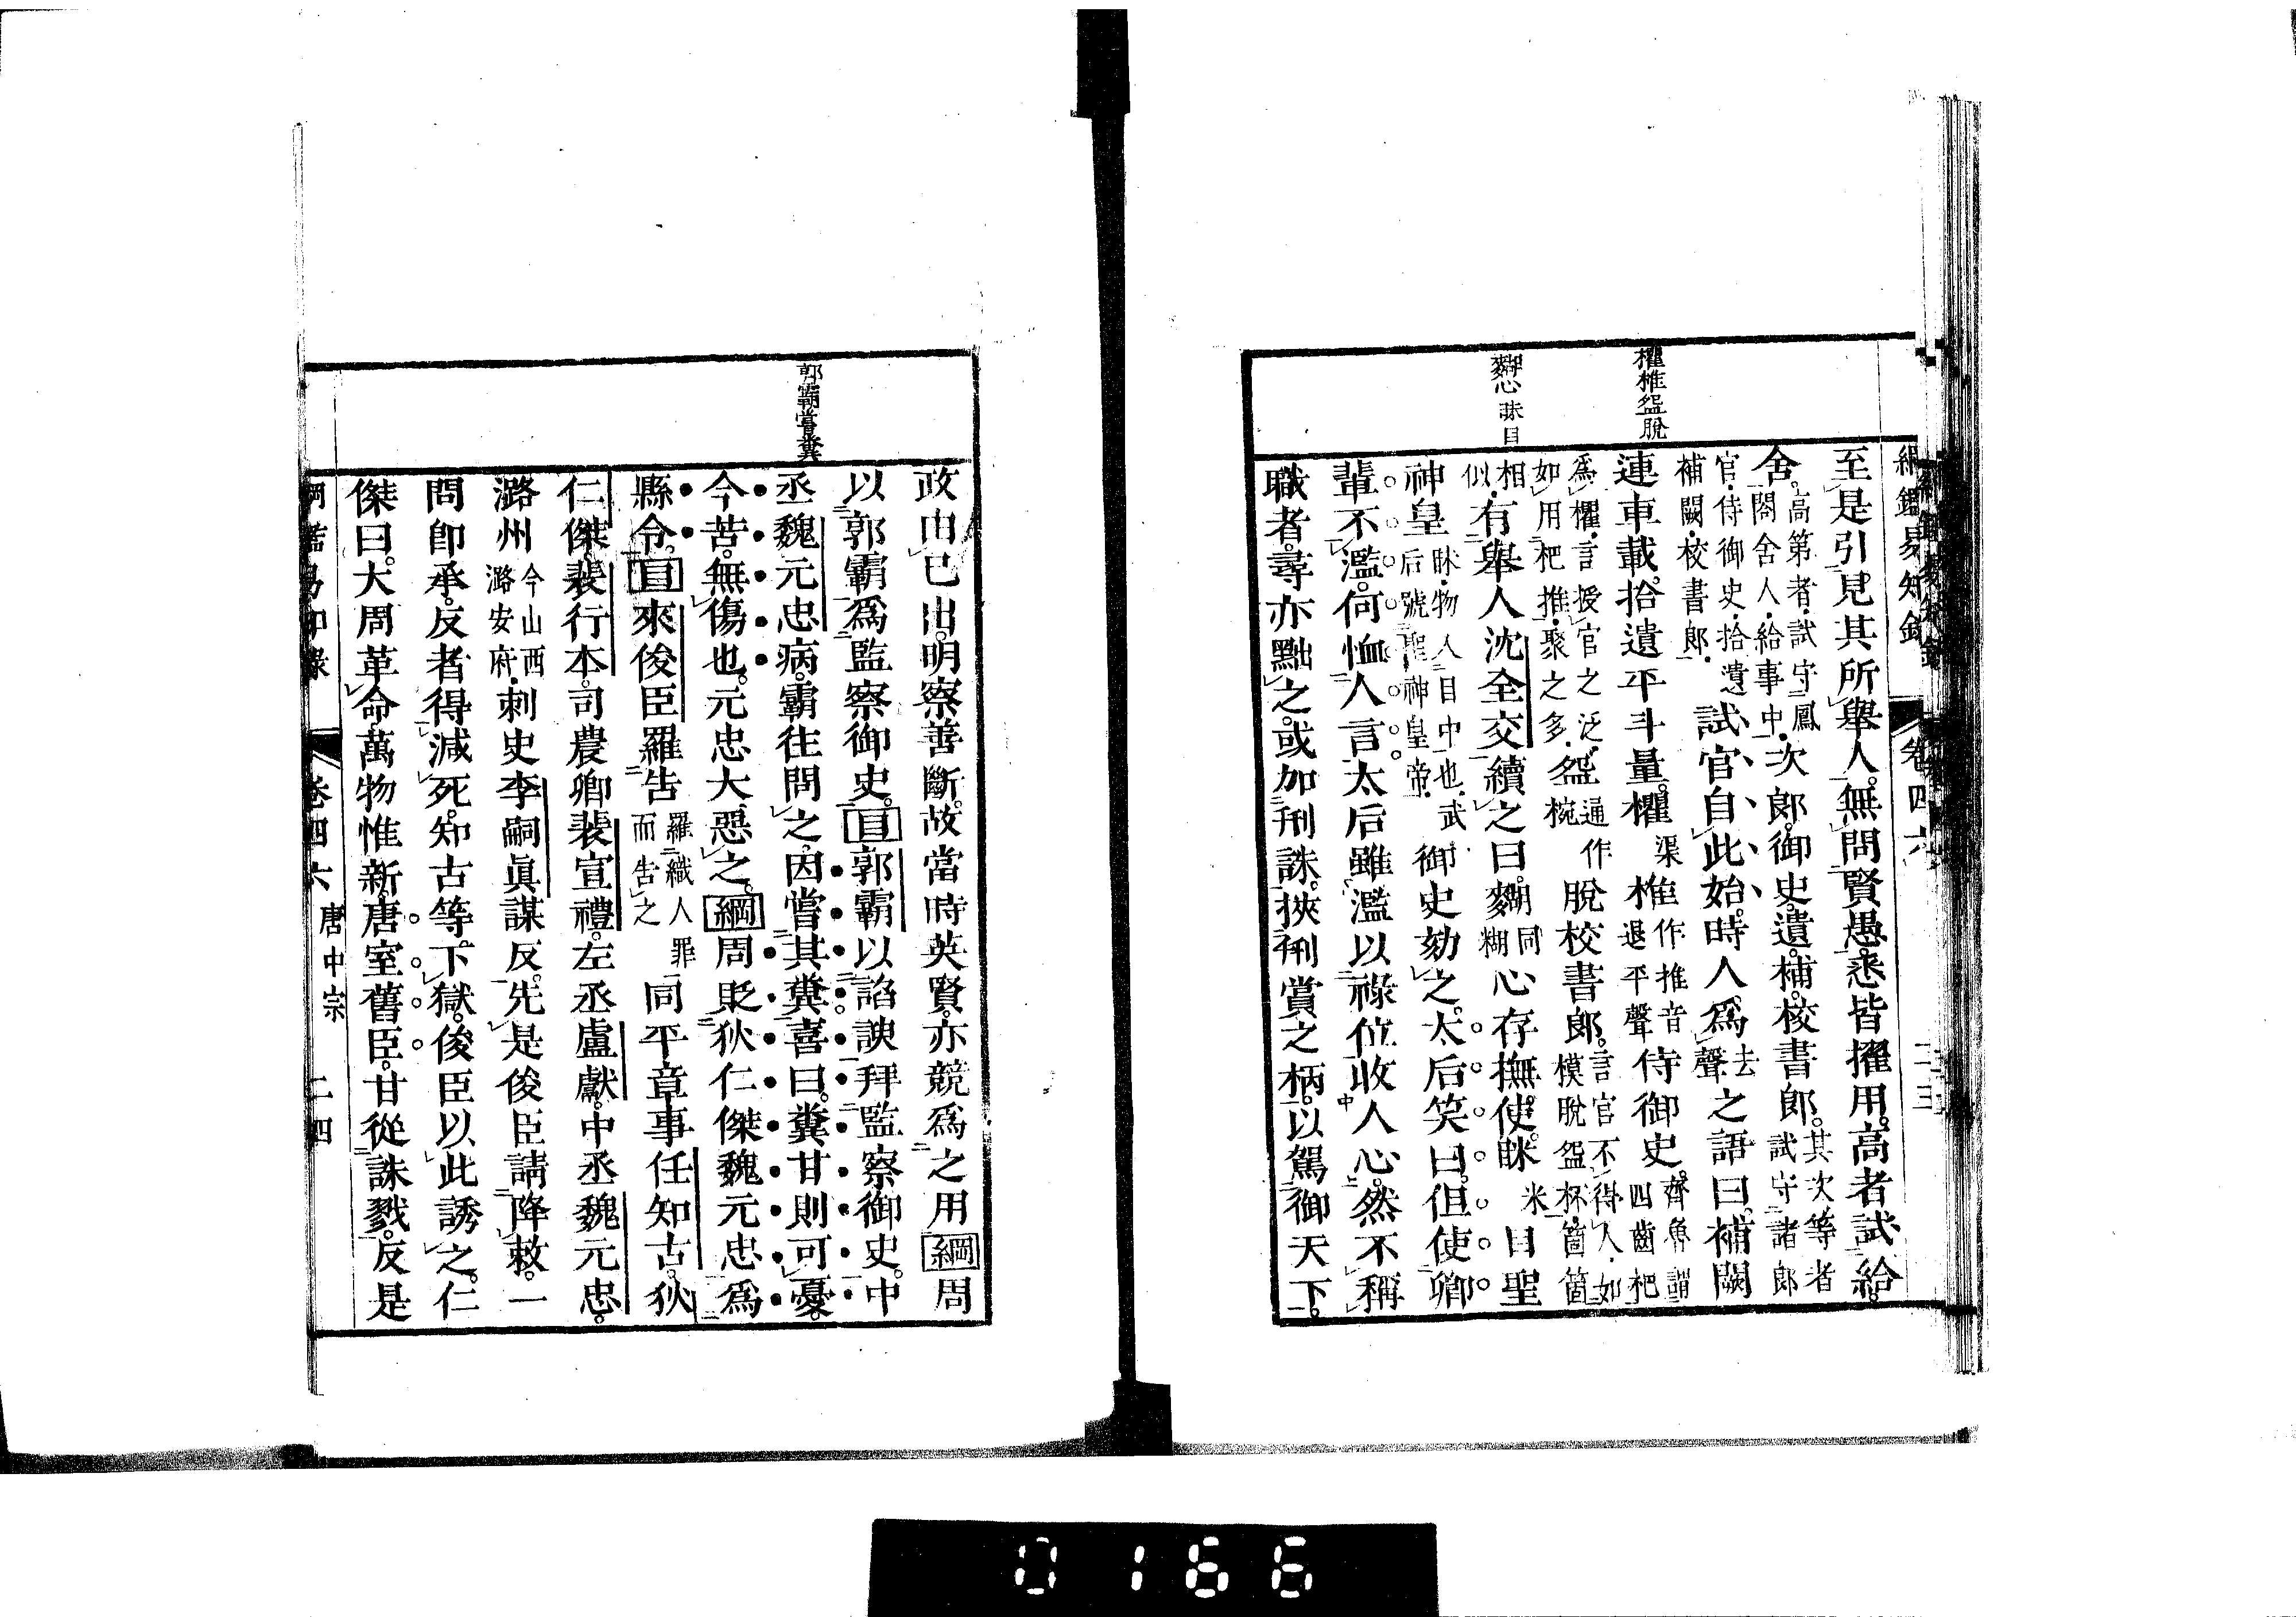 綱鑑易知錄 卷四六 二三
欋椎盌脫
麪心眯目
至是引見其所舉人無問賢愚悉皆擢用高者試給
舍高第者試守鳳閣舍人給事中次郎御史遺補校書郎其次等者試守諸郎
官侍御史拾遺補闕校書郎試官自此始時人爲去聲之語曰補闕
連車載拾遺平斗量欋渠椎作推音退平聲侍御史齊魯謂四齒杷
爲欋言授官之泛如用杷推聚之多盌通作椀脫校書郎言官不得人如模脫盌杯箇箇
相似有舉人沈全交續之曰麪糊同糊心存撫使眯米目聖
神皇眯物入目中也武后號聖神皇帝御史劾之太后笑曰但使卿
輩不濫何恤人言太后雖濫以祿位收人心然不稱
職者尋亦黜之或加刑誅挾刑賞之柄以駕御天下
郭霸嘗糞
政由已出明察善斷故當時英賢亦競爲之用綱周
以郭霸爲監察御史目郭霸以諂諛拜監察御史中
丞魏元忠病霸往問之因嘗其糞喜曰糞甘則可憂
今苦無傷也元忠大惡之綱周貶狄仁傑魏元忠爲
縣令目來俊臣羅告羅織人罪而告之同平章事任知古狄
仁傑裴行本司農卿裴宣禮左丞盧獻中丞魏元忠
潞州今山西潞安府刺史李嗣眞謀反先是俊臣請降敕一
問卽承反者得減死知古等下獄俊臣以此誘之仁
傑曰大周革命萬物惟新唐室舊臣甘從誅戮反是
綱鑑易知錄 卷四六 唐中宗 二四
0166